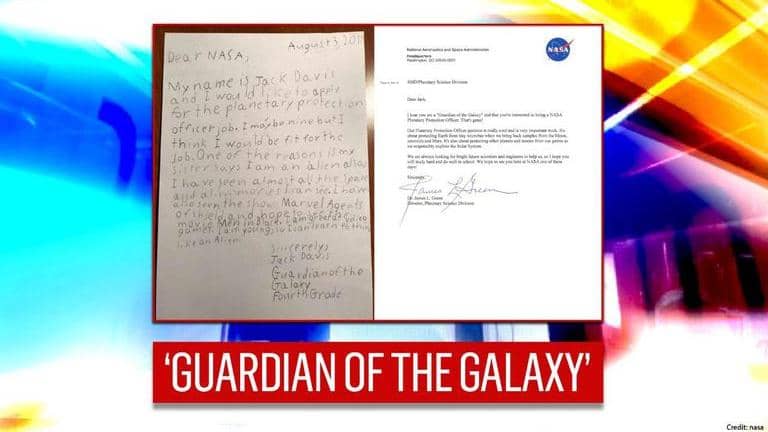 August 3, 201
Dear NASA,
My name is Jack Davis
and I would like to apply
for the planetary protection
officer job. I may be nine but I
think I would be fit for the
job. One of the reasons is my
sister says I am an alien also
I have seen almost all the space
and alien movies I can see. I have
also seen the show Marvel Agents
of Shield and hope to see the
movie Men in Black. I am great at video
games. I am young, so I can learn to think
like an Alien.
Sincerely,
Jack Davis
Guardian of the
Galaxy
Fourth Grade
National Aeronautics and Space Administration
Headquarters
Washington, DC 20546-0001
NASA
SMD/Planetary Science Division
Dear Jack,
I hear you are a "Guardian of the Galaxy" and that you're interested in being a NASA
Planetary Protection Officer. That's great!
Our Planetary Protection Officer position is really cool and is very important work. It's
about protecting Earth from tiny microbes when we bring back samples from the Moon,
asteroids and Mars. It's also about protecting other planets and moons from our germs as
we responsibly explore the Solar System.
We are always looking for bright future scientists and engineers to help us, so I hope you
will study hard and do well in school. We hope to see you here at NASA one of these
days!
Sincerely,
James L Green
Dr. James L. Green
Director, Planetary Science Division
'GUARDIAN OF THE GALAXY'
Credit: nasa